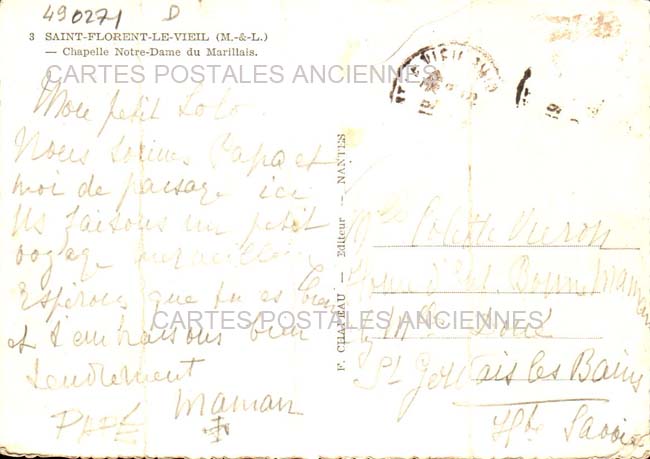 490271 D
3 SAINT-FLORENT-LE-VIEIL (M.-&-L.)
— Chapelle Notre-Dame du Marillais.
CARTES POSTALES ANCIENNES
Mon petit Loto
Nous sommes Papa et
moi de passage ici
Ns faisons un petit
voyage merveilleux
Espérons que tu es
et t'embrassons bien
tendrement
Maman
PAPE
F. CHATEAU — Editeur — NANTES
Mlle Colette
Bonne Maman
St Gervais les Bains
Hte Savoie
CARTES POSTALES ANCIENNES